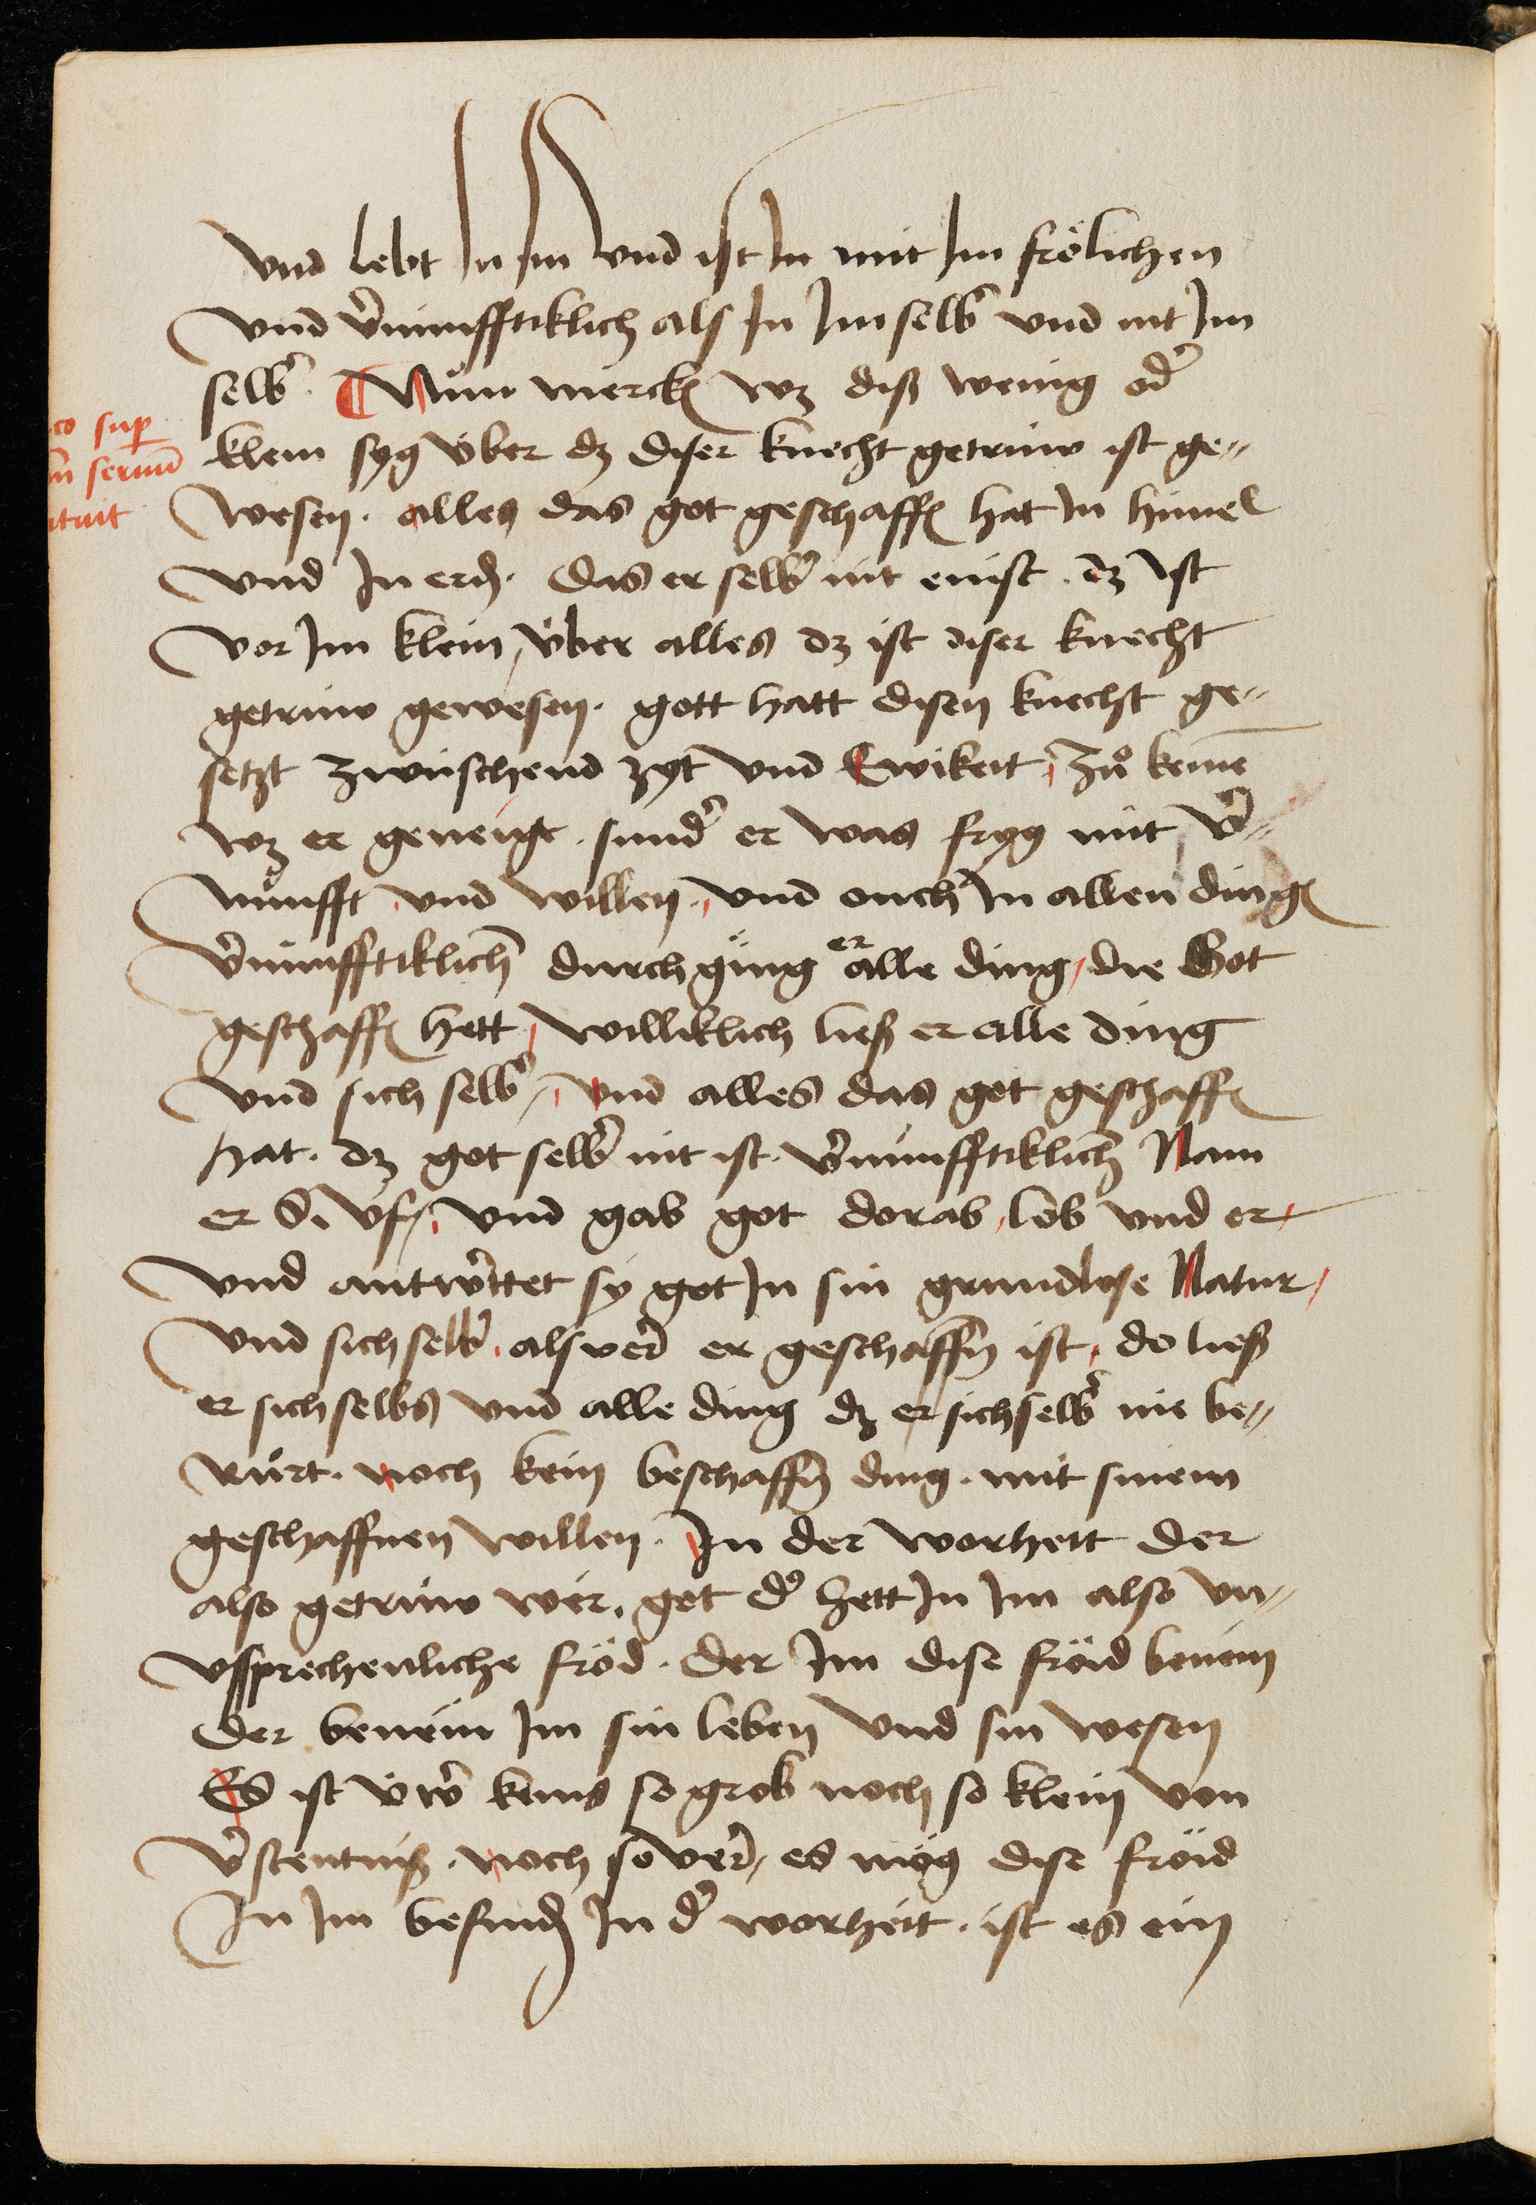 vnd lebt In Im vnd ist In mit Im frölichen
vnd v̾nunfftiklich als In Im selb̾ vnd nit Im
selb̾. ¶ Nůn merck wz diß wenig od̾
co sup̱
klein syg v́ber dz diser knecht getrúw ist ge⸗
m̄ seruū
wesen. alles das got geschaffn̄ hat In himel
ituit
vnd In erd̄. das er selb̾ nit enist. dz ist
vor Im klein, v́ber alles dz ist diser knecht
getrúw gewesen. gott hatt disen knecht ge⸗
setzt zwúschend zyt vnd Ewikeit, zů keinē
wz er geneigt. sund̾ er was fryg mit v̾⸗
nunfft vnd willen. vnd ouch In allen dingn̄
v̾nunfftiklich̄ durch ging er alle ding, die Got
geschaffn̄ hett, williklich ließ er alle ding
vnd sich selb̾, vnd alles das got geschaffn̄
hat. dz got selb̾ nit ist. v̾nunfftiklich̄ Nam
er Si vf, vnd gab got dorab, lob vnd er,
vnd antw̾ttet sy got In sin grundlose Natur,
vnd sich selb̾, als ver̄ er geschaffn̄ ist, do ließ
er sich selbs vnd alle ding dz er sich selb̾ nie be⸗
růrt. noch kein beschaffn̄ ding. mit sinem
geschaffnen willen. In der worheit der
also getrúw wér, got d̾ hett In Im also vn⸗
vssprechenliche fröd. der Im dise fröid beném
der beném Im sin leben vnd sin wesen
Es ist v́w̾ keins so grob noch so klein von
v̾stentniß. noch so ver̄, es mög dise fröid
In Im befind̄ In d̾ worheit. ist es ein